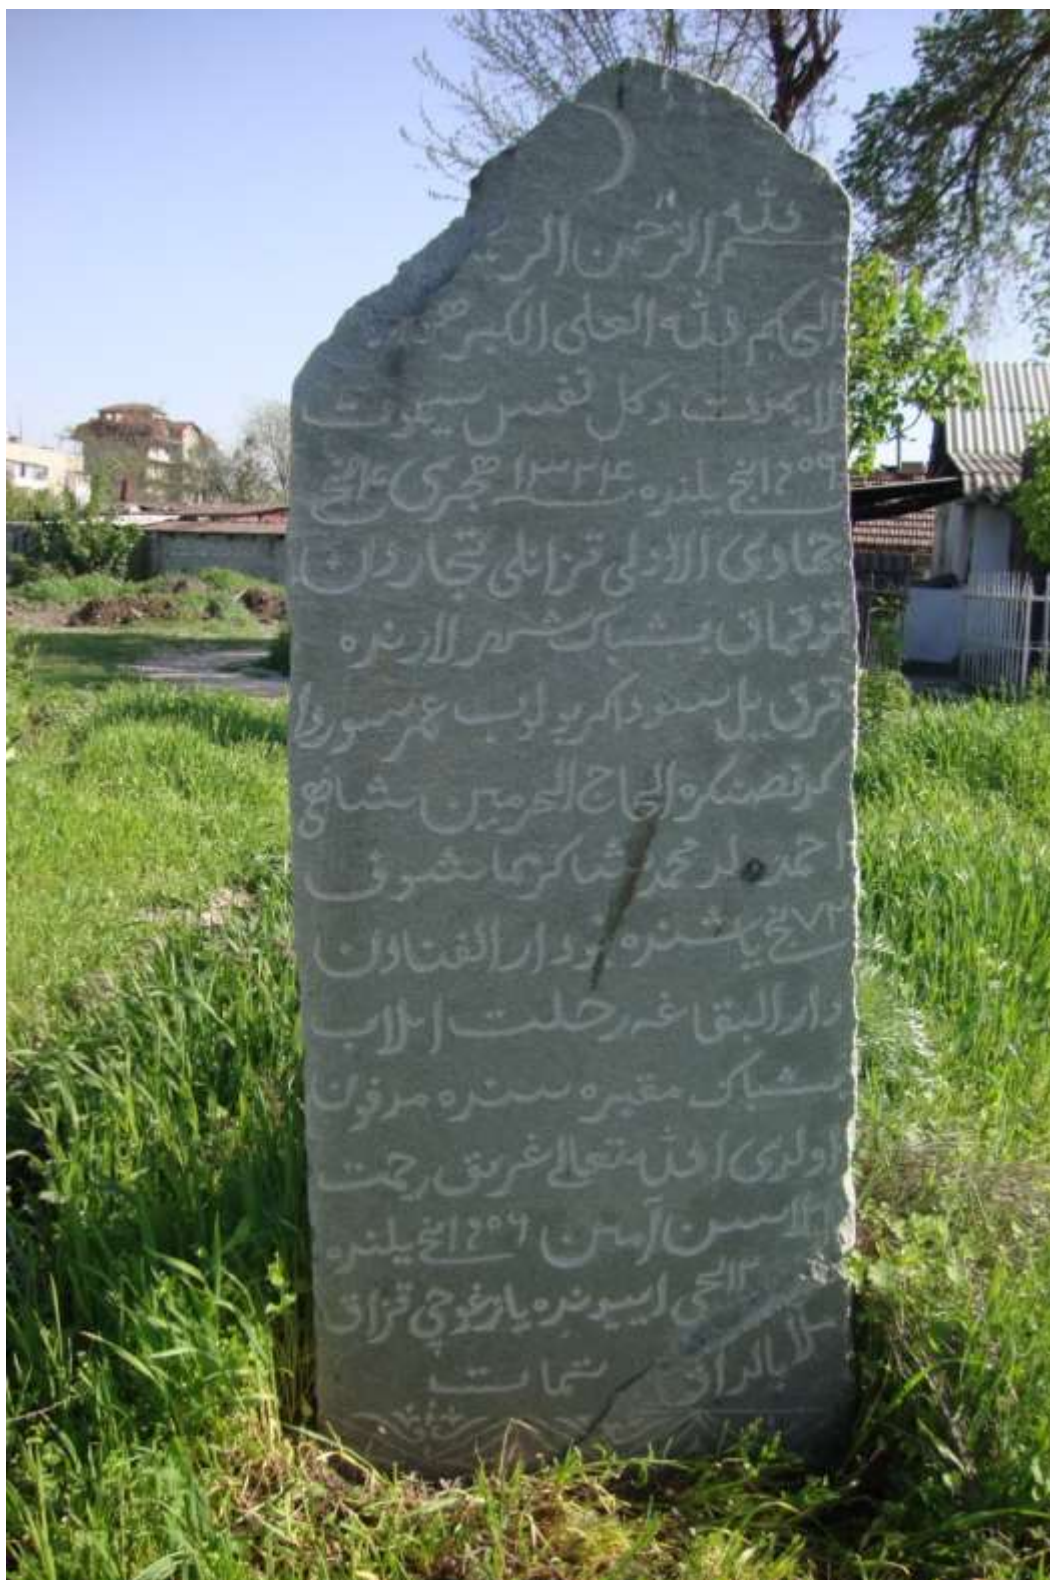 بسم الله الرحمن الر
الحكم لله العلى الكبير هو
لا يموت وكل نفس سيموت
١٩٠٦ انچى يلنده ١٣٢٤ هجرى ٤ انچى
جمادى الاولى قزانلى تجاردان
توقماق بشباك شهر لارنده
قرق ييل سوداكر بولوب عمر سوردا
كر نصنكره الحاج الحرمين شاهى
احمد محمد شاكر يماشوف
٧٢ نچى ياشنده بو دار الفنادن
دار البقاغه رحلت ايلاب
بشباك مقبره سنده مدفون
اولدى الله تعالى غريق رحمت
ايلاسن آمين ١٩٠٦ انچى يلنده
١٢ انچى ايوننده يازغوچى قزاق
تمات